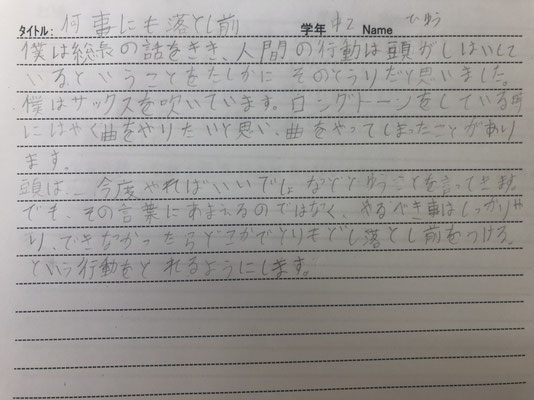 タイトル: 何事にも落とし前 学年 中2 Name りゅう
僕は総長の話をきき、人間の行動は頭がしはいして
いるということをたしかにそのとうりだと思いました。
僕はサックスを吹いています。ロングトーンをしている時
にはやく曲をやりたいと思い、曲をやってしまったことがあり
ます。
頭は、今度やればいいでしょなどとゆうことを言ってきます。
でも、その言葉にあまえるのではなく、やるべき事はしっかりや
り、できなかったらどこかでとりもどし落とし前をつける。
という行動をとれるようにします。